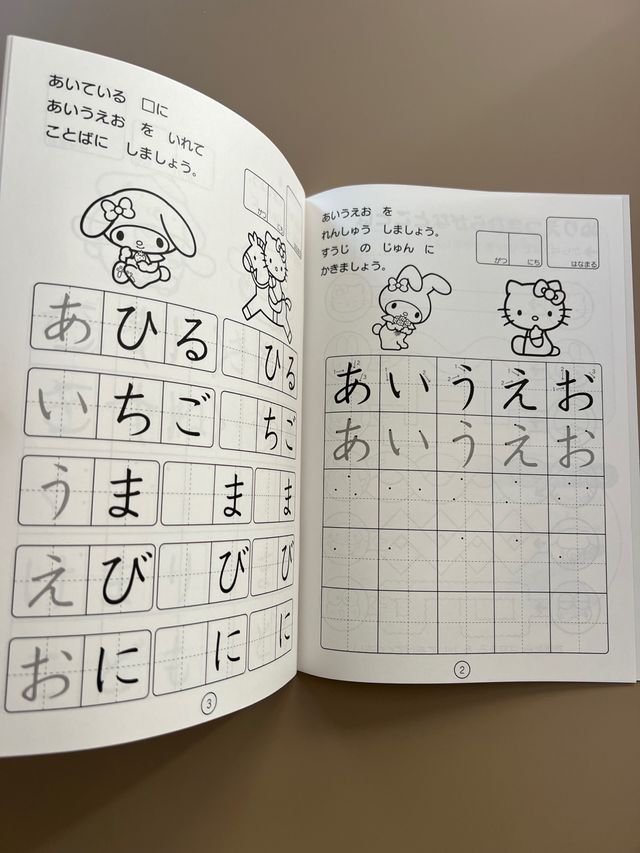 あいている □に
あいうえお を いれて
ことばに しましょう。
がつ にち
あひる ひる
いちご ちご
うま ま ま
えび び び
おに に に
3
あいうえお を
れんしゅう しましょう。
すうじ の じゅん に
かきましょう。
がつ にち はなまる
あいうえお
あいうえお
2